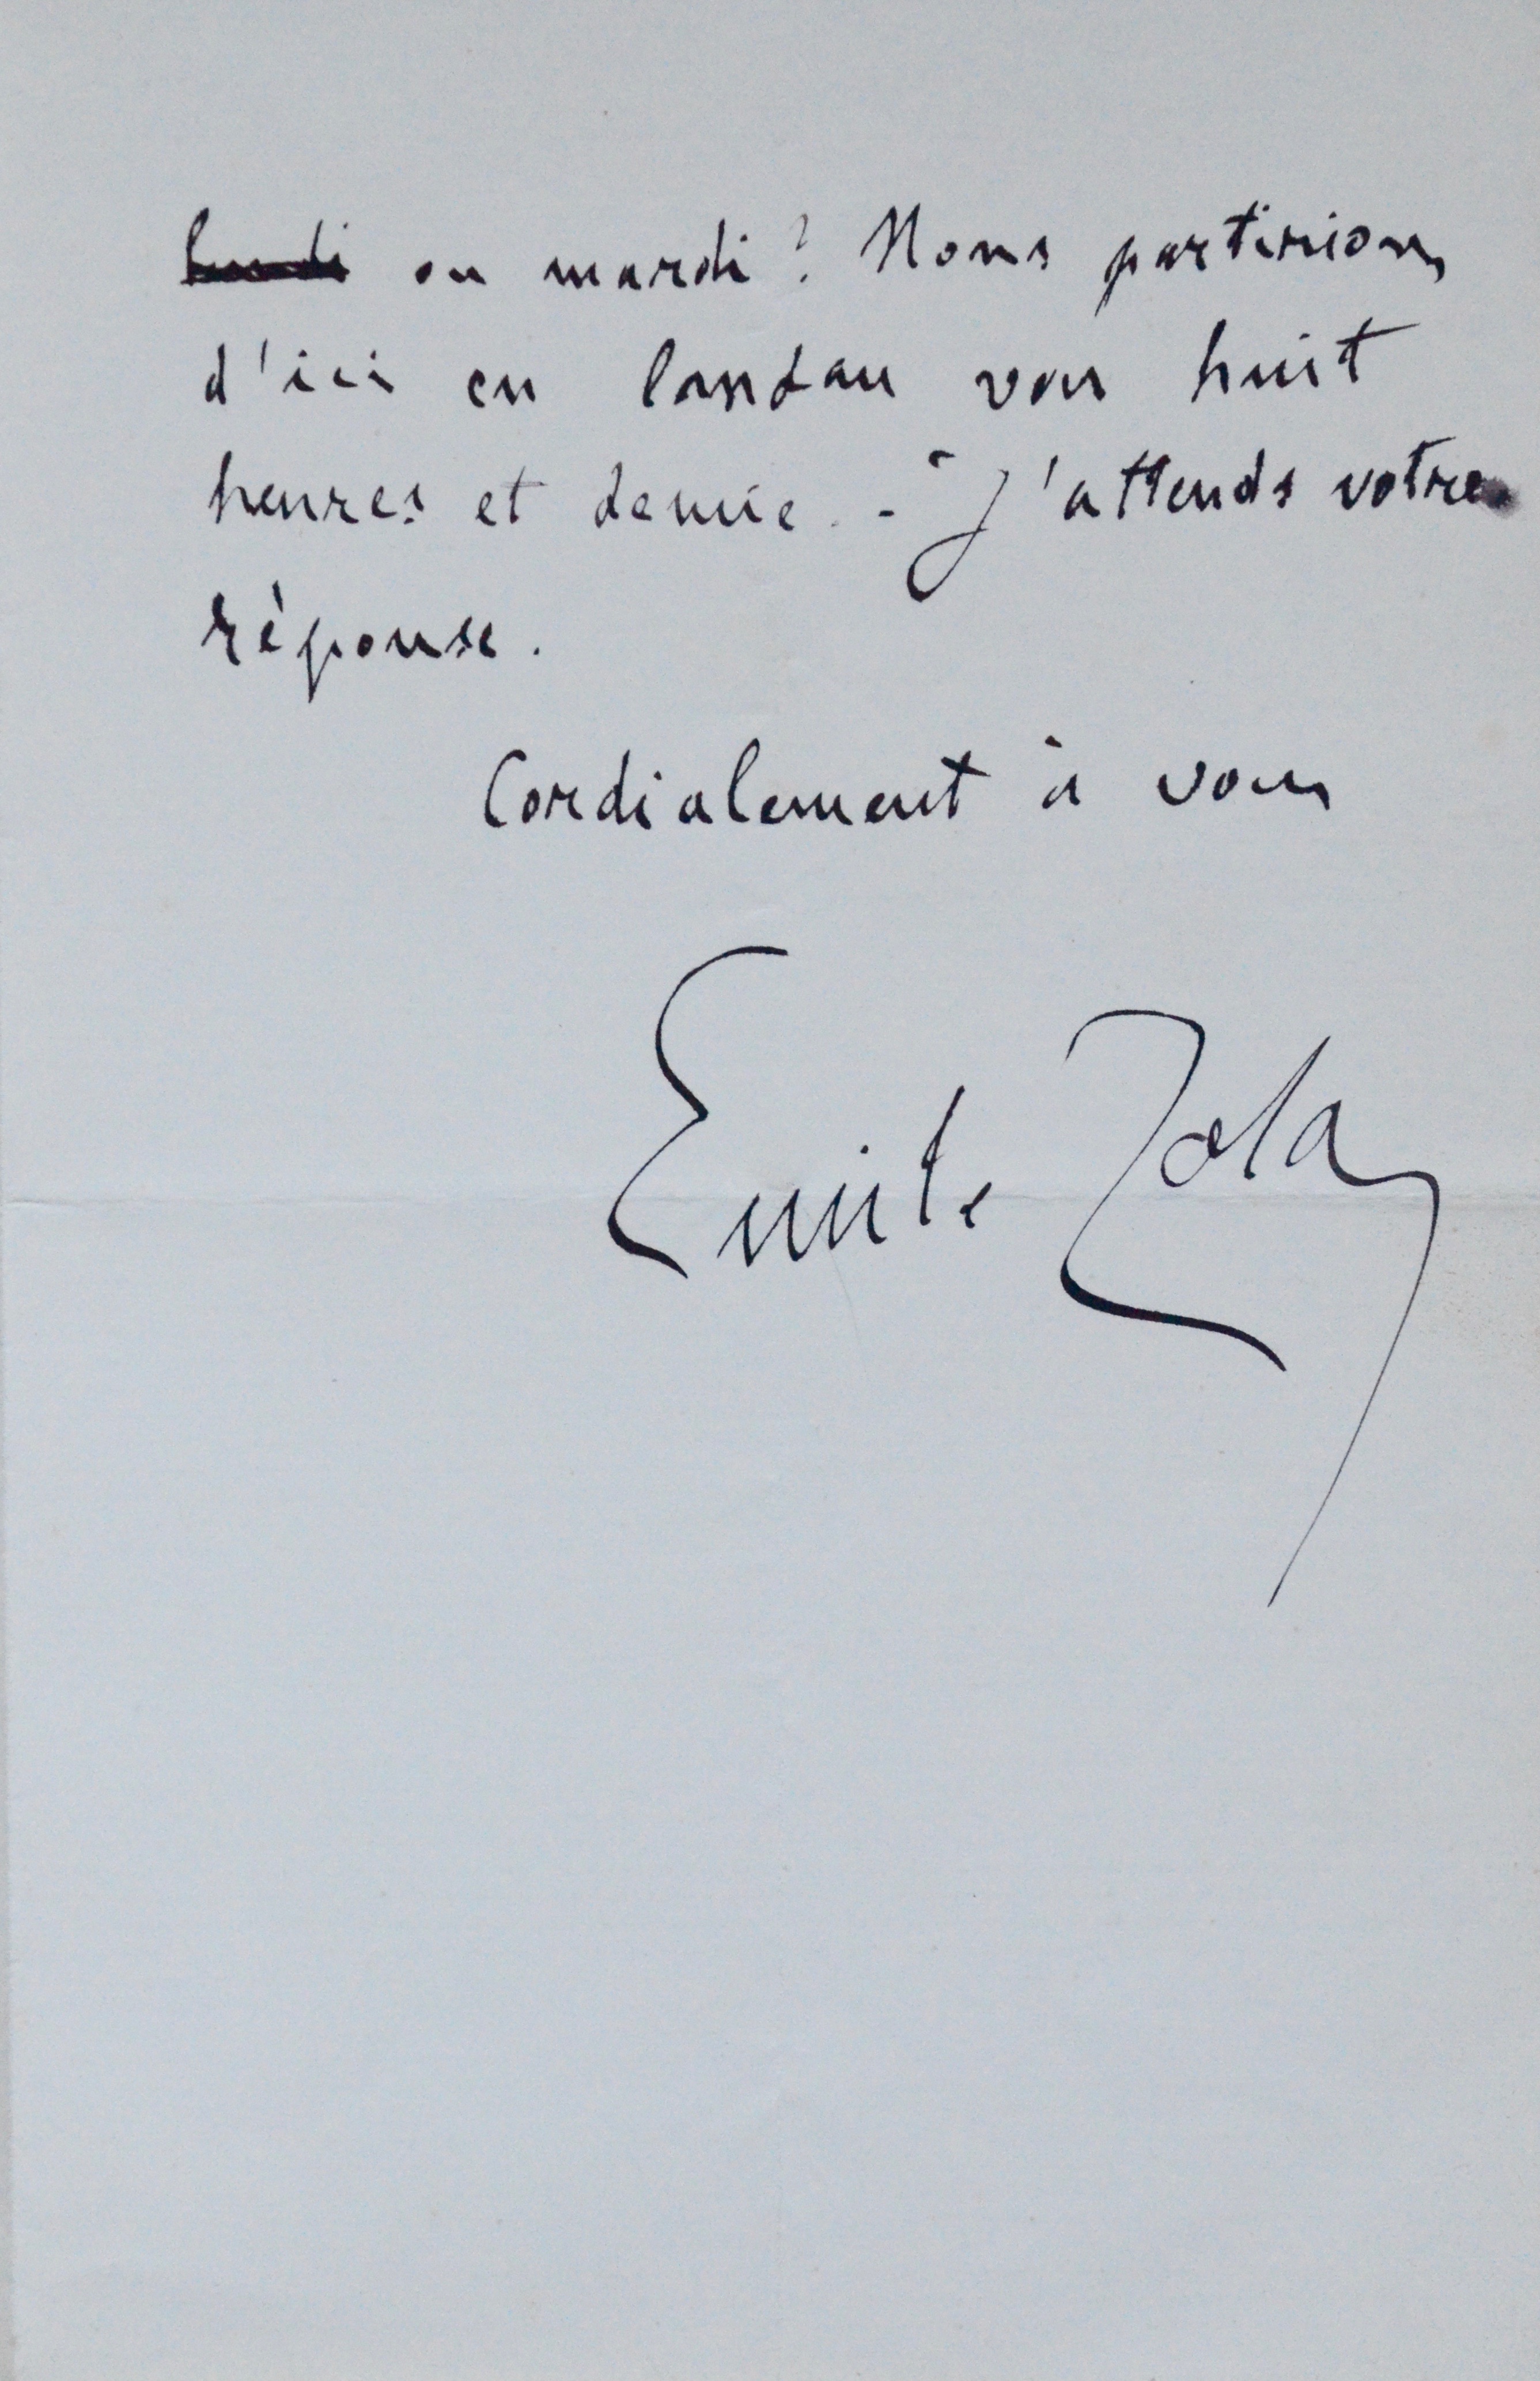 lundi ou mardi ? Nous partirions
d'ici en landau vers huit
heures et demie. - J'attends votre
réponse.
Cordialement à vous
Emile Zola